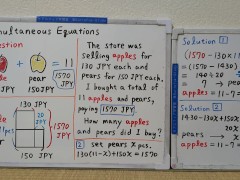 Simultaneous Equations
Question
= 11
apple
pear
1570 JPY
130 JPY
20
JPY
1570
JPY
150 JPY
The store was
selling apples for
130 JPY each and
pears for 150 JPY each.
I bought a total of
11 apples and pears,
paying 1570 JPY.
How many apples
and pears did I buy?
2 set pears x pcs.
130(11-x)+150x = 1570
Solution 1
(1570-130×11
=(1570-1430)
= 140÷20
= 7 → pea
apples = 11-7=
Solution 2
1430-130x+150x
20x
x
pears
apples = 11-7